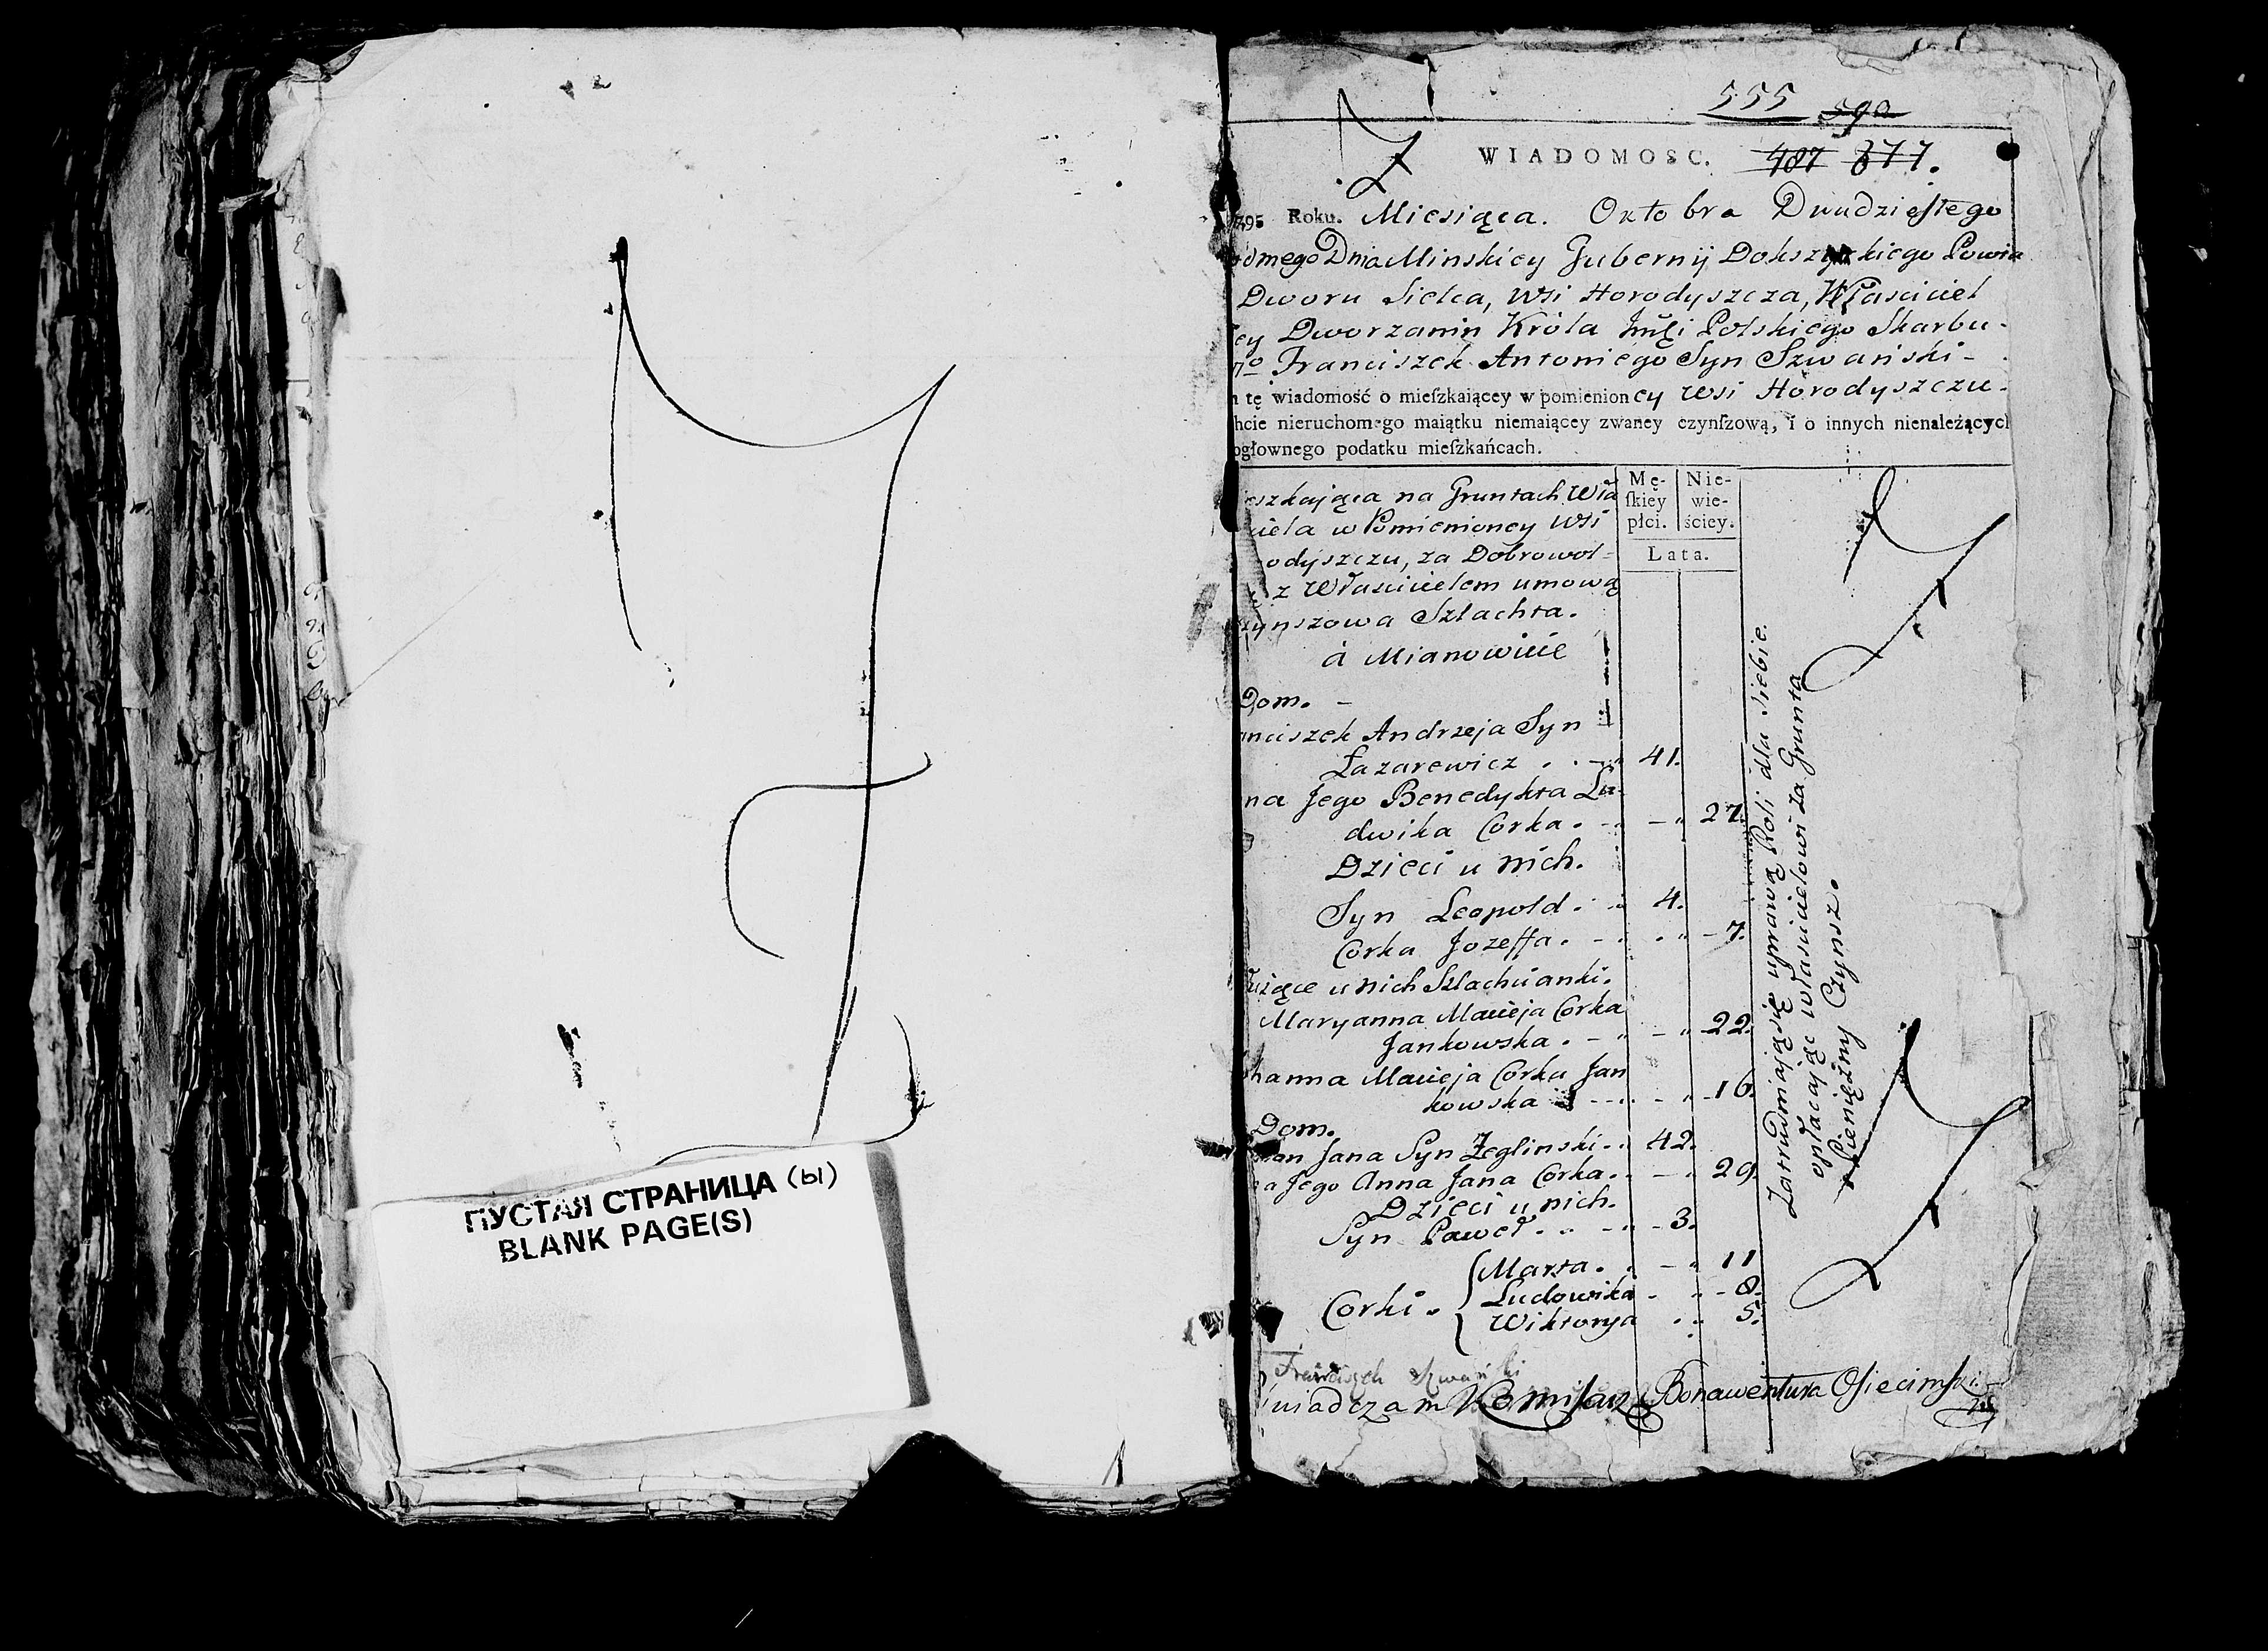 ПУСТАЯ СТРАНИЦА (Ы)
BLANK PAGE(S)
555 590
WIADOMOSC. 487 377.
795 Roku. Miesiąca. Oktobra Dwudziestego
omego Dnia Minskiey Gubernij Dokszyckiego Powia
Dworu Sielca, Wsi Horodyszcza, Właściciel
ey Dworzanin Króla Polskiego Skarbu-
Franciszek Antoniego Syn Szwański -
tę wiadomość o mieſzkaiącey w pomienioney Wsi Horodyszczu.
hcie nieruchomego maiątku niemaiącey zwaney czynſzową, i o innych nienależących
ogłownego podatku mieſzkańcach.
eszkająca na Gruntach Wła
ciela w Pomienioney Wsi
odyszczu, za Dobrowol-
z Właścicielem umową
zynszowa Szlachta.
à Mianowicie
Mę-
ſkiey
płci.
Nie-
wie-
ściey.
Lata.
Dom. -
nciszek Andrzeja Syn
Łazarewicz . . 41.
na Jego Benedykta Lu-
dwika Corka. - 27.
Dzieci u nich.
Syn Leopold . 4.
Corka Jozeffa. - 7.
użące u nich Szlachcianki.
Maryanna Macieja Corka
Jankowska. - 22.
hanna Macieja Corka Jan
kowska - 16.
Dom.
an Jana Syn Żeglinski. 42.
a Jego Anna Jana Corka. - 29.
Dzieci u nich.
Syn Paweł. - 3.
Marta. - 11
Corki. Ludowika - 8.
Wiktorya 5.
Zatrudniają się uprawą Roli dla siebie.
opłacając właścicielowi za Grunta
Pieniężny Czynsz.
Franciszek Szwański
wiadczam Komisarz Bonawentura Osiecimski